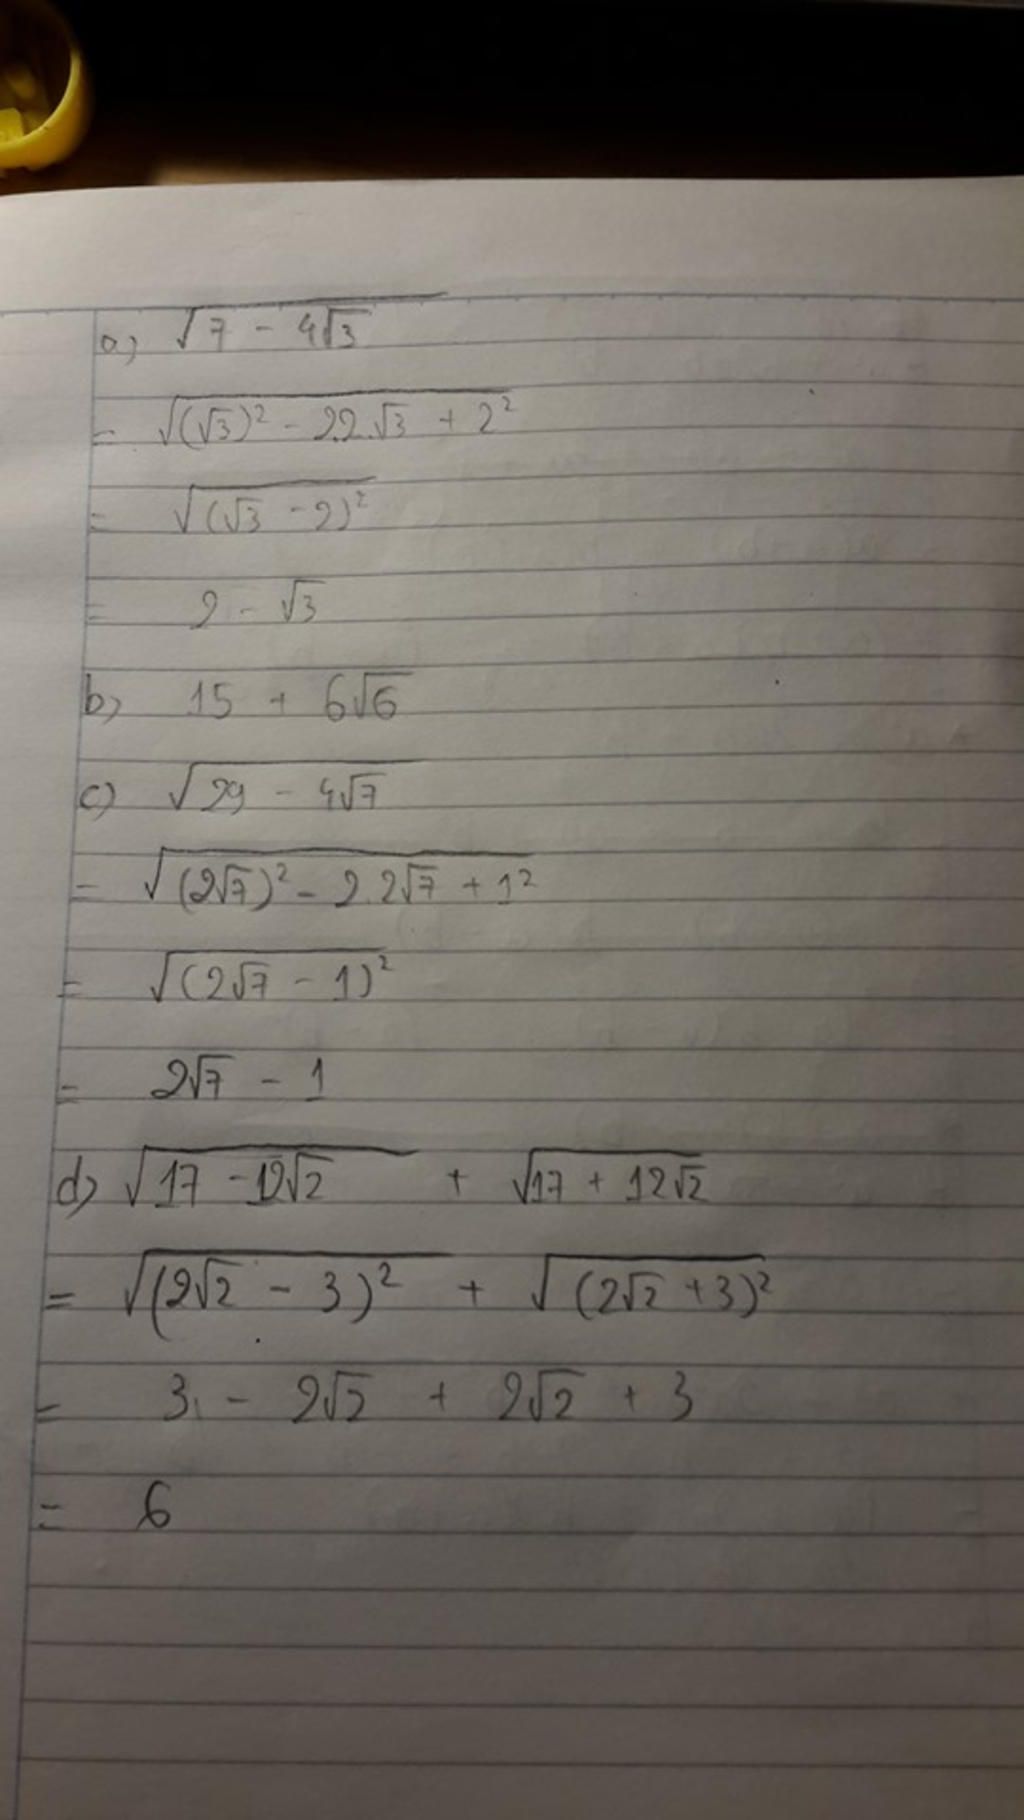 a) √(7 - 4√3)
= √((√3)² - 2.2.√3 + 2²)
= √((√3 - 2)²)
= 2 - √3
b) 15 + 6√6
c) √(29 - 4√7)
= √((2√7)² - 2.2√7 + 1²)
= √((2√7 - 1)²)
= 2√7 - 1
d) √(17 - 12√2) + √(17 + 12√2)
= √((2√2 - 3)²) + √((2√2 + 3)²)
= 3 - 2√2 + 2√2 + 3
= 6